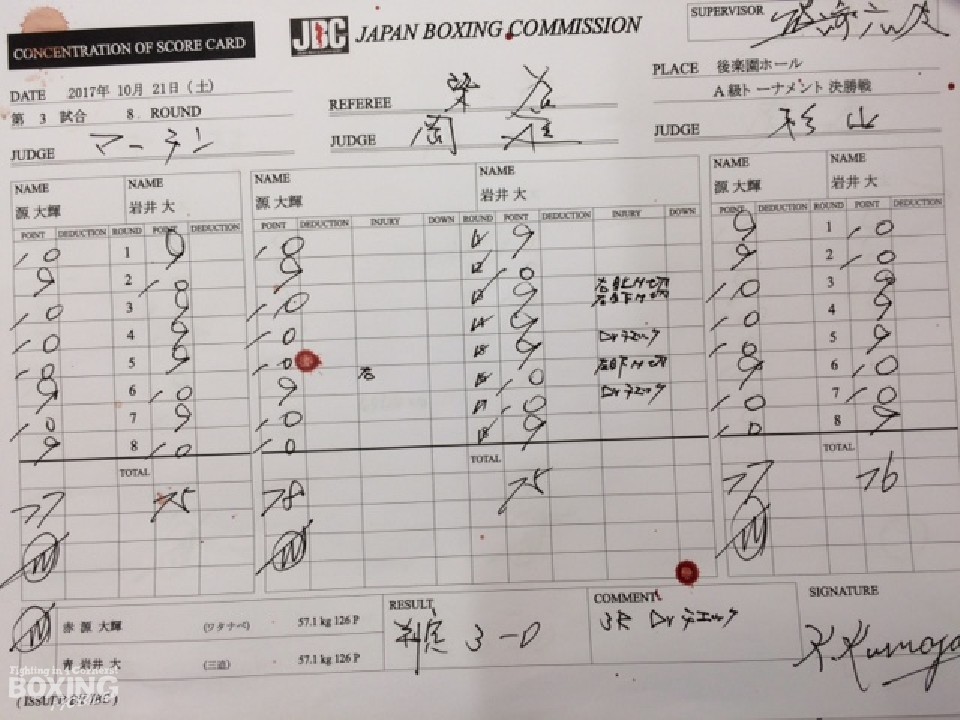 CONCENTRATION OF SCORE CARD
JBC JAPAN BOXING COMMISSION
SUPERVISOR
DATE 2017年 10月 21日 (土)
第 3 試合 8 ROUND
REFEREE
PLACE 後楽園ホール
A級トーナメント決勝戦
JUDGE マーチン
JUDGE
JUDGE 杉山
NAME NAME NAME NAME NAME NAME
源 大輝 岩井 大 源 大輝 岩井 大 源 大輝 岩井 大
POINT DEDUCTION ROUND POINT DEDUCTION POINT DEDUCTION INJURY DOWN ROUND POINT DEDUCTION INJURY DOWN POINT DEDUCTION ROUND POINT DEDUCTION
10 1 9 10 1 9 9 1 10
9 2 10 9 2 10 9 2 10
10 3 9 10 3 9 10 3 9
10 4 9 10 4 9 10 4 9
10 5 9 10 5 9 Drチェック 10 5 9
9 6 10 9 右 6 10 9 6 10
10 7 9 10 7 10 Drチェック 10 7 10
9 8 10 10 8 9 10 8 9
TOTAL TOTAL TOTAL
77 75 78 75 77 76
W W W
W 赤 源 大輝 (ワタナベ) 57.1 kg 126 P
青 岩井 大 (三迫) 57.1 kg 126 P
RESULT
判定 3-0
COMMENT
3R Drチェック
SIGNATURE
Fighting in 4 Corners!
BOXING